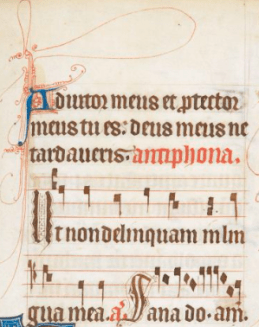 Adiutor meus et ꝓtector
meus tu es: deus meus ne
tardaueris. antiphona.
Ut non delinquam in lin
gua mea. a̅. Sana do. am̅.